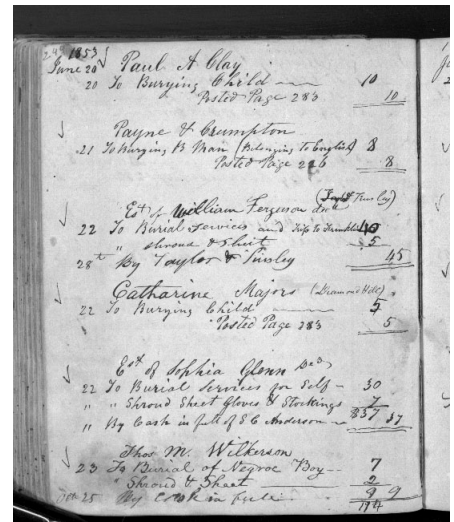 1853
June 20 Paul A Clay
20 To Burying Child 10
Posted Page 283 10
Payne & Crumpton
21 To Burying B Man (Belonging to English) 8
Posted Page 226 8
Est of William Ferguson
22 To Burial Services and Trip to Franklin 40
" Shroud & Sheet 5
28th By Taylor & Tinsley 45
Catharine Majors (Diamond Hill)
22 To Burying Child 5
Posted Page 283 5
Est of Sophia Glenn Decd
22 To Burial Services for Self 30
" " Shroud Sheet Gloves & Stockings 7
" By Cash in full of S C Anderson $37 37
Thos M. Wilkerson
23 To Burial of Negroe Boy 7
" Shroud & Sheet 2
25 By in full 9 9
194